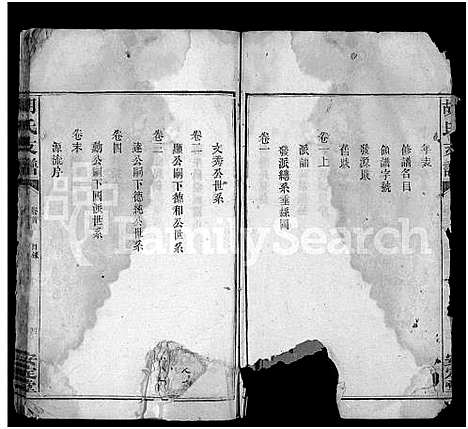 胡氏支譜
年表
修譜名目
領譜字號
發源眾
舊眾
卷之上
派譜
卷一
發派總系垂絲圖
文秀公世系
卷二
應公嗣下德和公世系
卷三
達公嗣下德純公世系
卷四
勳公嗣下國派世系
卷末
源流序
胡氏支譜
目錄
安定堂
FamilySearch